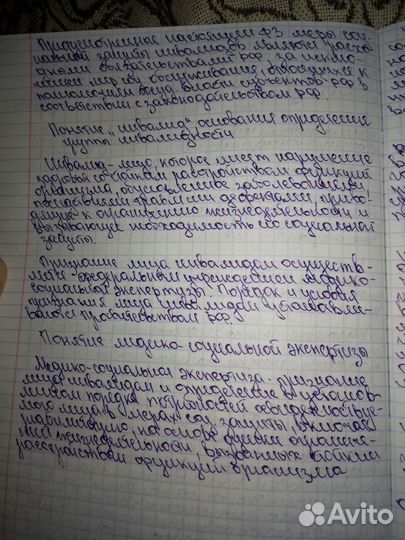 Предусмотренные настоящим ФЗ меры соц
иальной защиты инвалидов являются расхо
дными обязательствами РФ, за исклю-
чением мер соц обслуживания относящихся к
полномочиям госуд. власти субъектов РФ в
соответствии с законодательством РФ
Понятие "инвалид" основания определения
группы инвалидности
Инвалид - лицо, которое имеет нарушение
здоровья со стойким расстройством функций
организма, обусловленное заболеваниями,
последствиями травм или дефектами, приво-
дящие к ограничению жизнедеятельности и
вызывающее необходимость его социальной
защиты.
Признание лица инвалидом осуществ-
ляется федеральным учреждением медико-
социальной экспертизы. Порядок и условия
признания лица инвалидом устанавли-
вается правительством РФ
Понятие медико-социальной экспертизы
Медико-социальная экспертиза - признание
лица инвалидом и определение в установ-
ленном порядке потребностей освидетельствуе-
мого лица в мерах соц. защиты, включая
реабилитацию, на основе оценки ограниче-
ний жизнедеятельности, вызванных стойким
расстройством функций организма
Avito